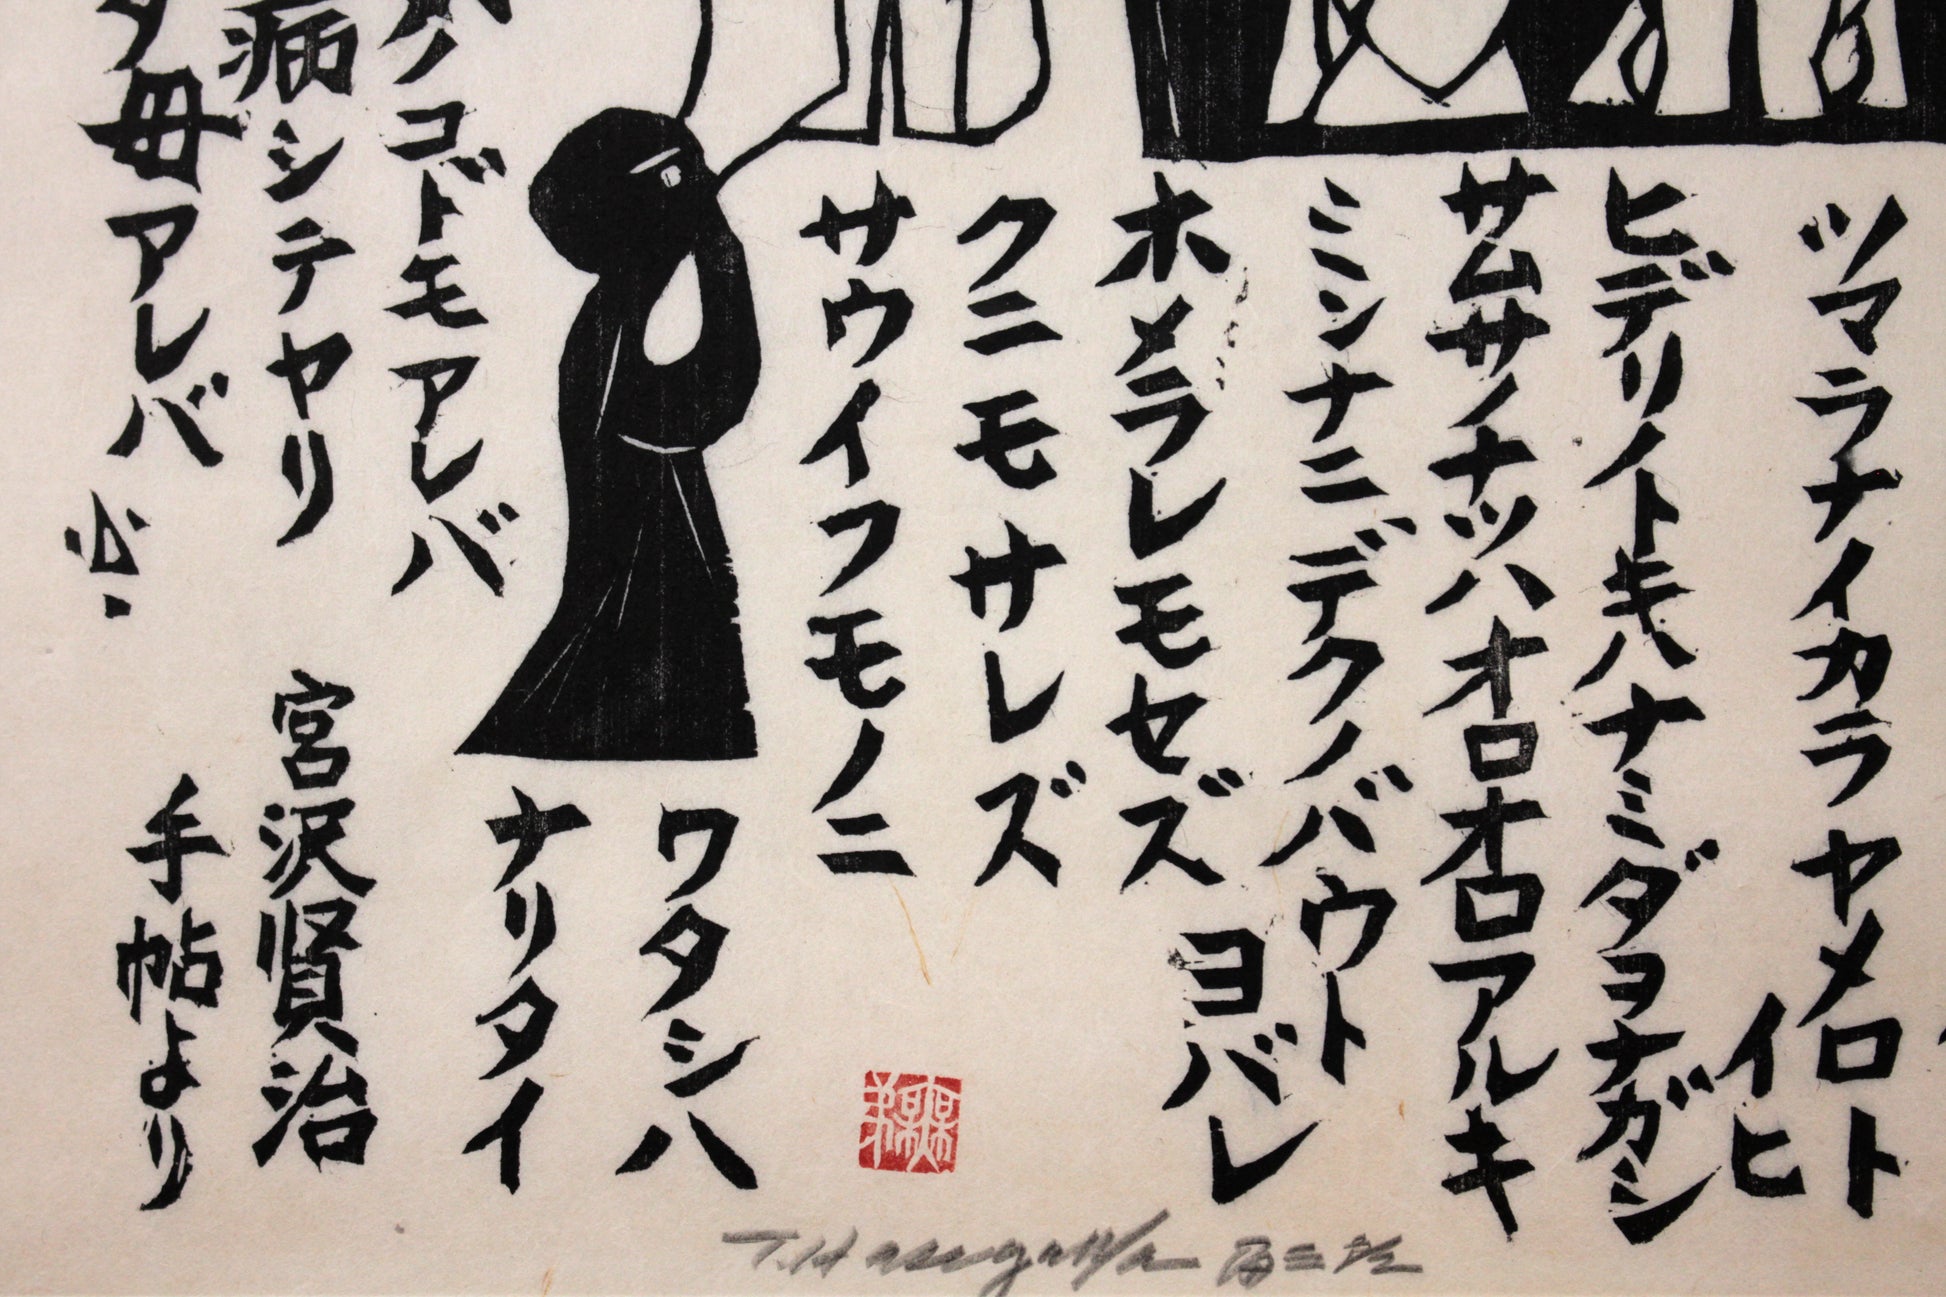 ツマラナイカラヤメロト
イヒ
ヒデリノトキハナミダヨナガシ
サムサノナツハオロオロアルキ
ミンナニデクノバウト
ヨバレ
ホメラレモセズ
クニモサレズ
サウイフモノニ
ワタシハ
ナリタイ
コドモアレバ
病シテヤリ
母アレバ
宮沢賢治
手帖より
T. Hasegawa